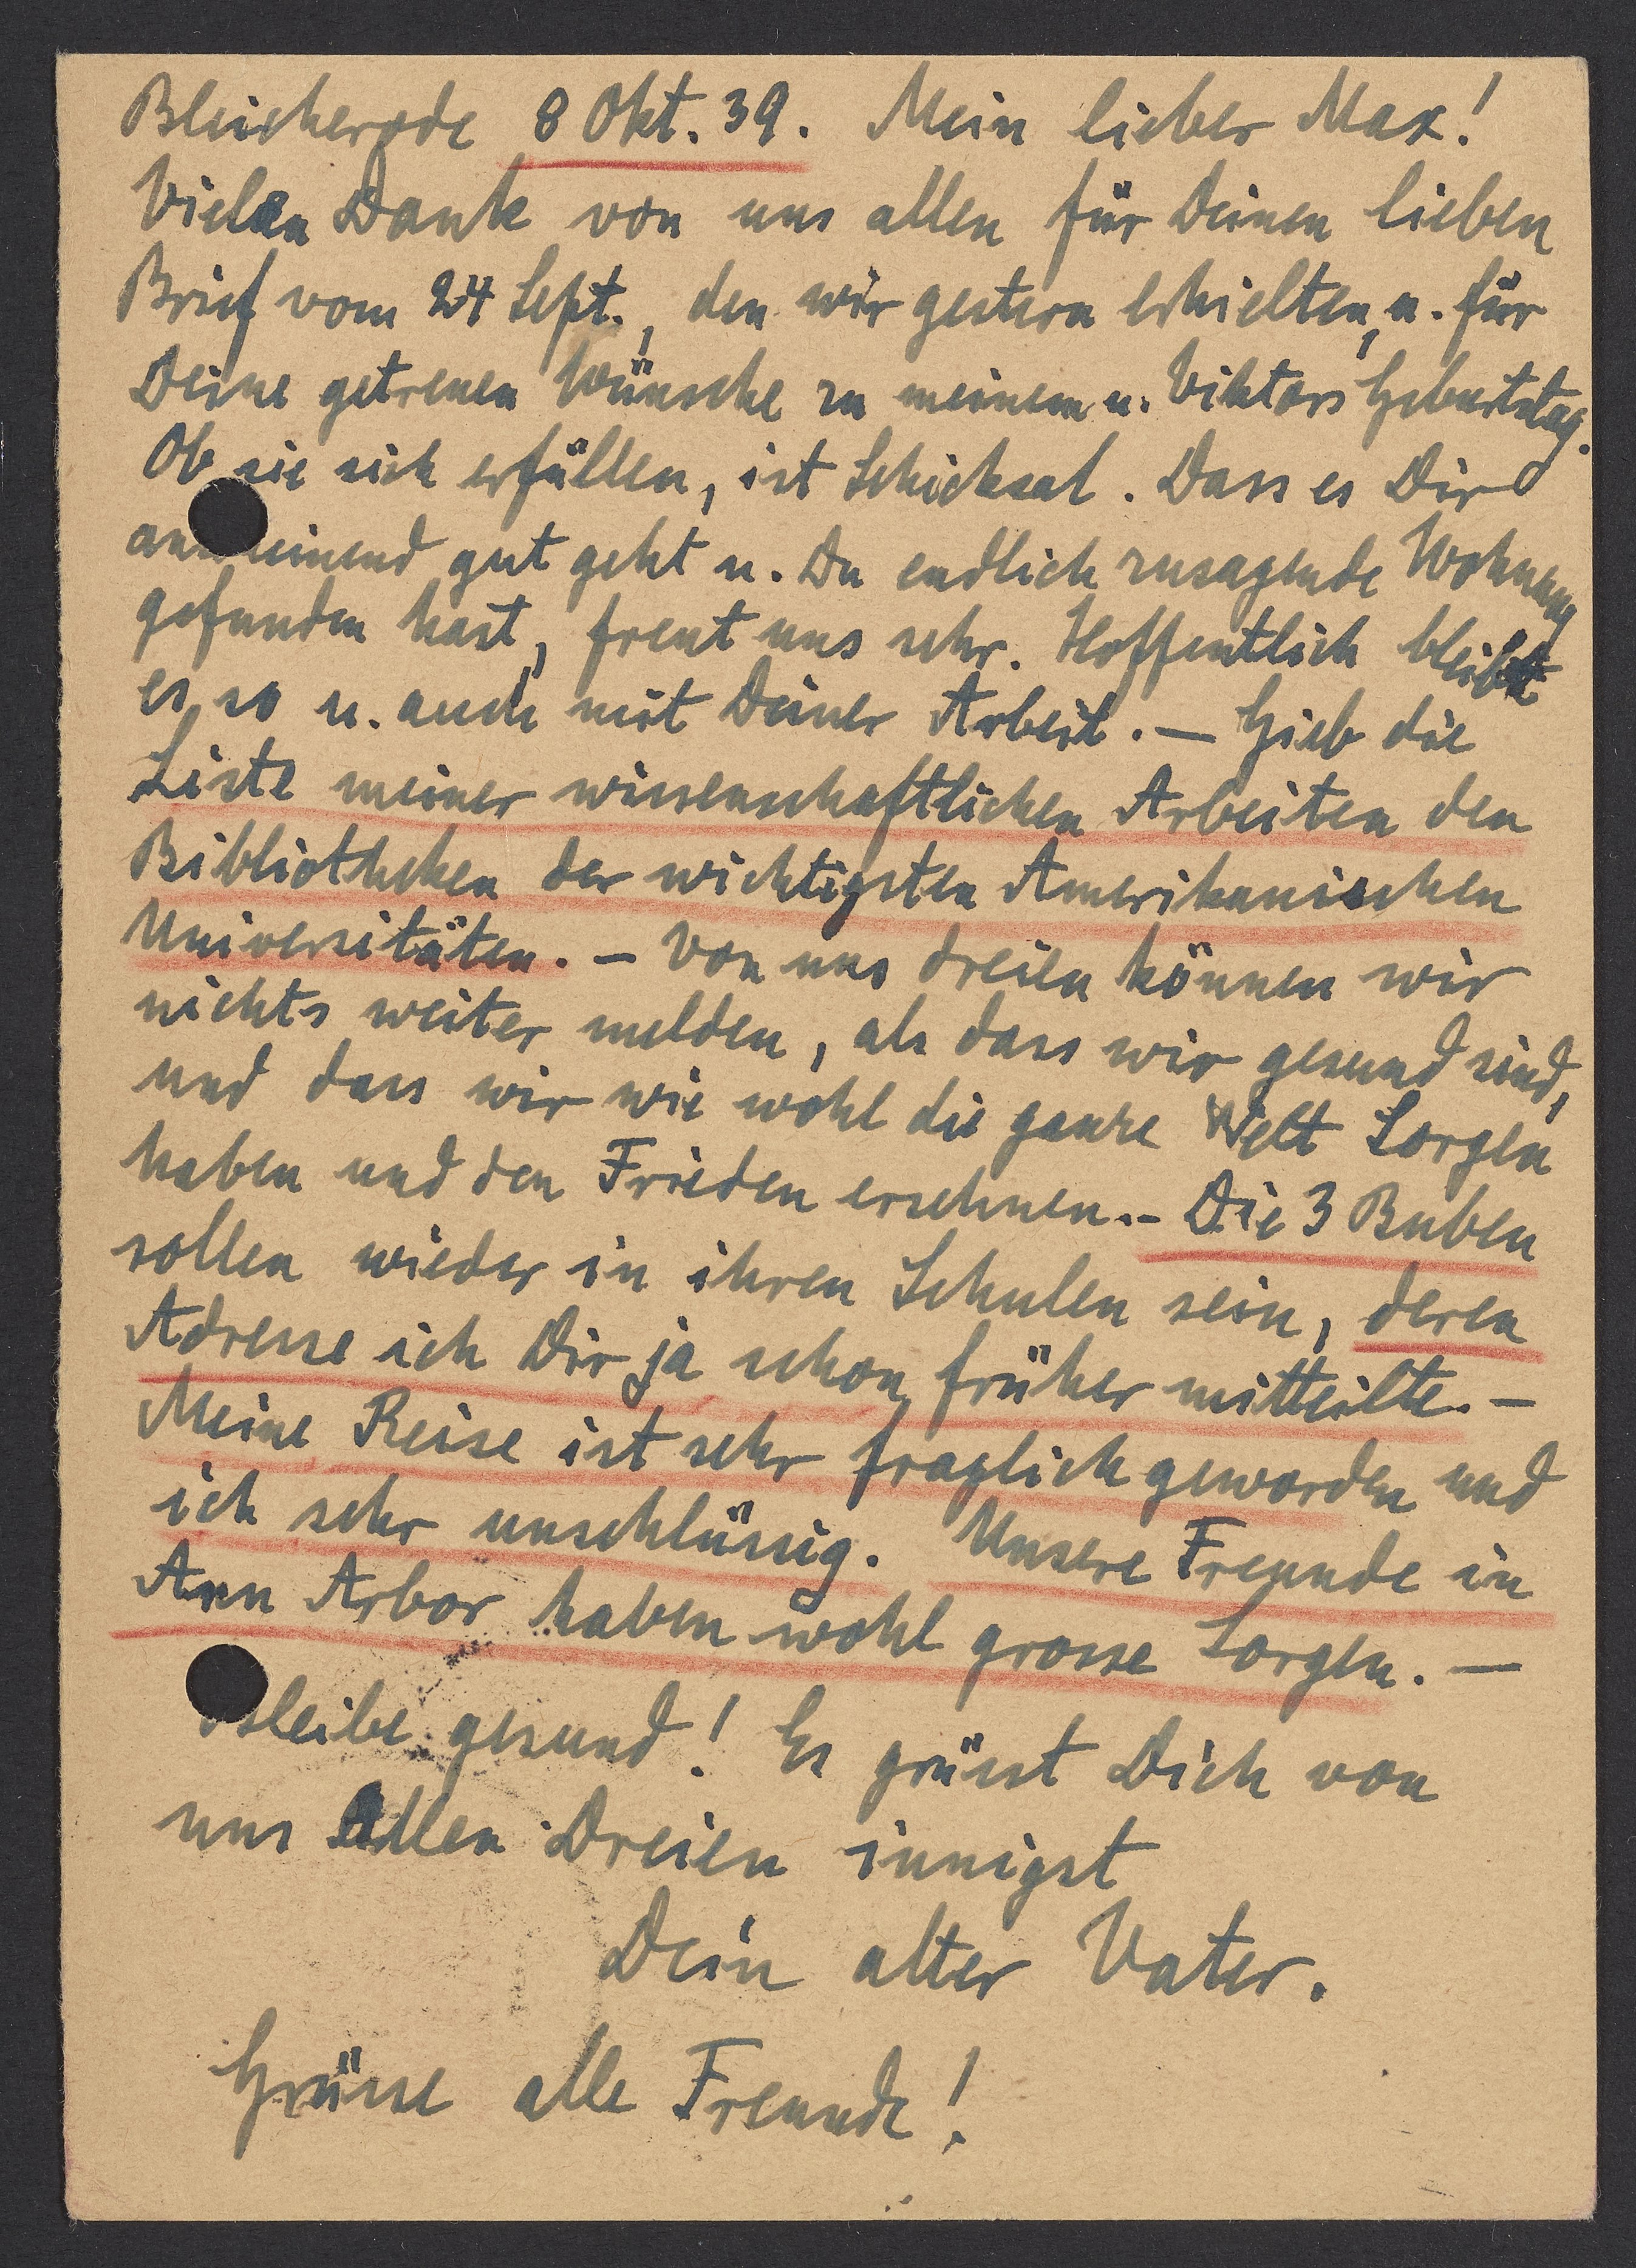 Bleicherode 8 Okt. 39. Mein lieber Max!
Vielen Dank von uns allen für Deinen lieben
Brief vom 24 Sept., den wir gestern erhielten, u. für
Deine getreuen Wünsche zu meinem u. Viktors Geburtstag.
Ob sie sich erfüllen, ist Schicksal. Dass es Dir
anscheinend gut geht u. Du endlich zusagende Wohnung
gefunden hast, freut uns sehr. Hoffentlich bleibt
es so u. auch mit Deiner Arbeit. — Gieb die
Liste meiner wissenschaftlichen Arbeiten den
Bibliotheken der wichtigsten Amerikanischen
Universitäten. – Von uns dreien können wir
nichts weiter melden, als dass wir gesund sind,
und dass wir wie wohl die ganze Welt Sorgen
haben und den Frieden ersehnen. – Die 3 Buben
sollen wieder in ihren Schulen sein, deren
Adresse ich Dir ja schon früher mitteilte. –
Meine Reise ist sehr fraglich geworden und
ich sehr unschlüssig. Unsere Freunde in
Ann Arbor haben wohl grosse Sorgen. —
Bleibe gesund! Es grüsst Dich von
uns Allen Dreien innigst
Dein alter Vater.
Grüsse alle Freunde!